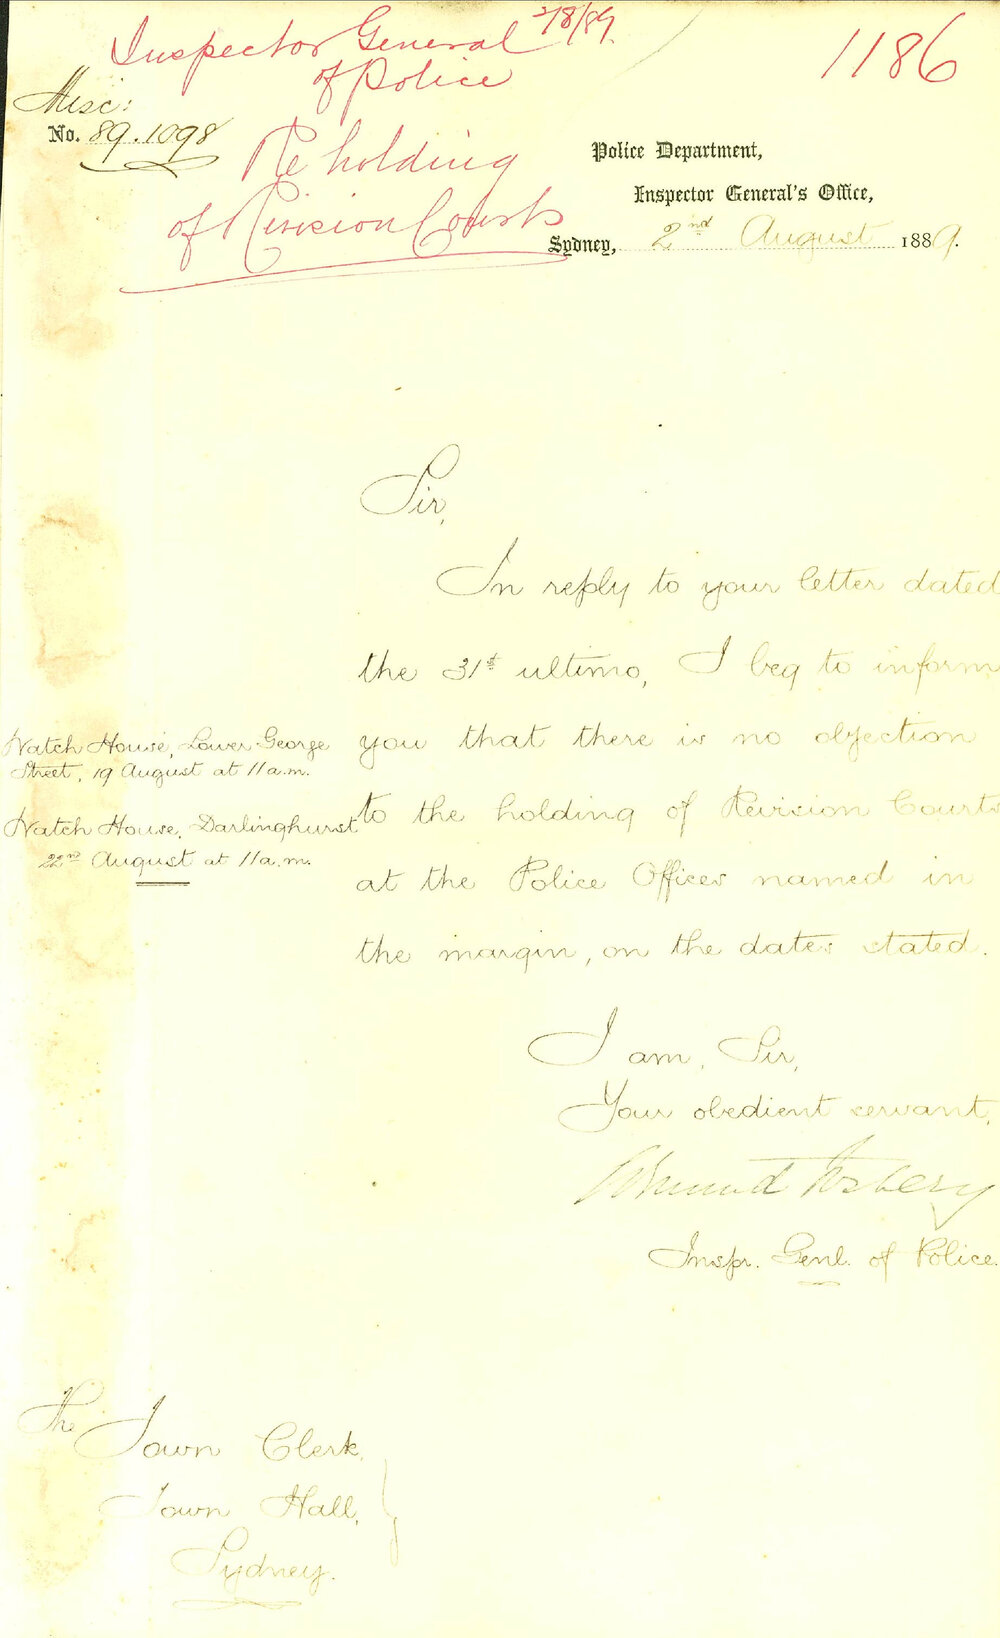 Inspector General 2/8/89.
of Police
1186
Misc:
No. 89.1098
Re holding
of Revision Courts
Police Department,
Inspector General's Office,
Sydney, 2nd August 1889.
Sir,
In reply to your letter dated
the 31st ultimo, I beg to inform
you that there is no objection
to the holding of Revision Courts
at the Police Offices named in
the margin, on the dates stated.
Watch House, Lower George
Street, 19 August at 11 a.m.
Watch House, Darlinghurst
22nd August at 11 a.m.
I am, Sir,
Your obedient servant,
Edmund Fosbery
Inspr. Genl. of Police.
The Town Clerk,
Town Hall,
Sydney.